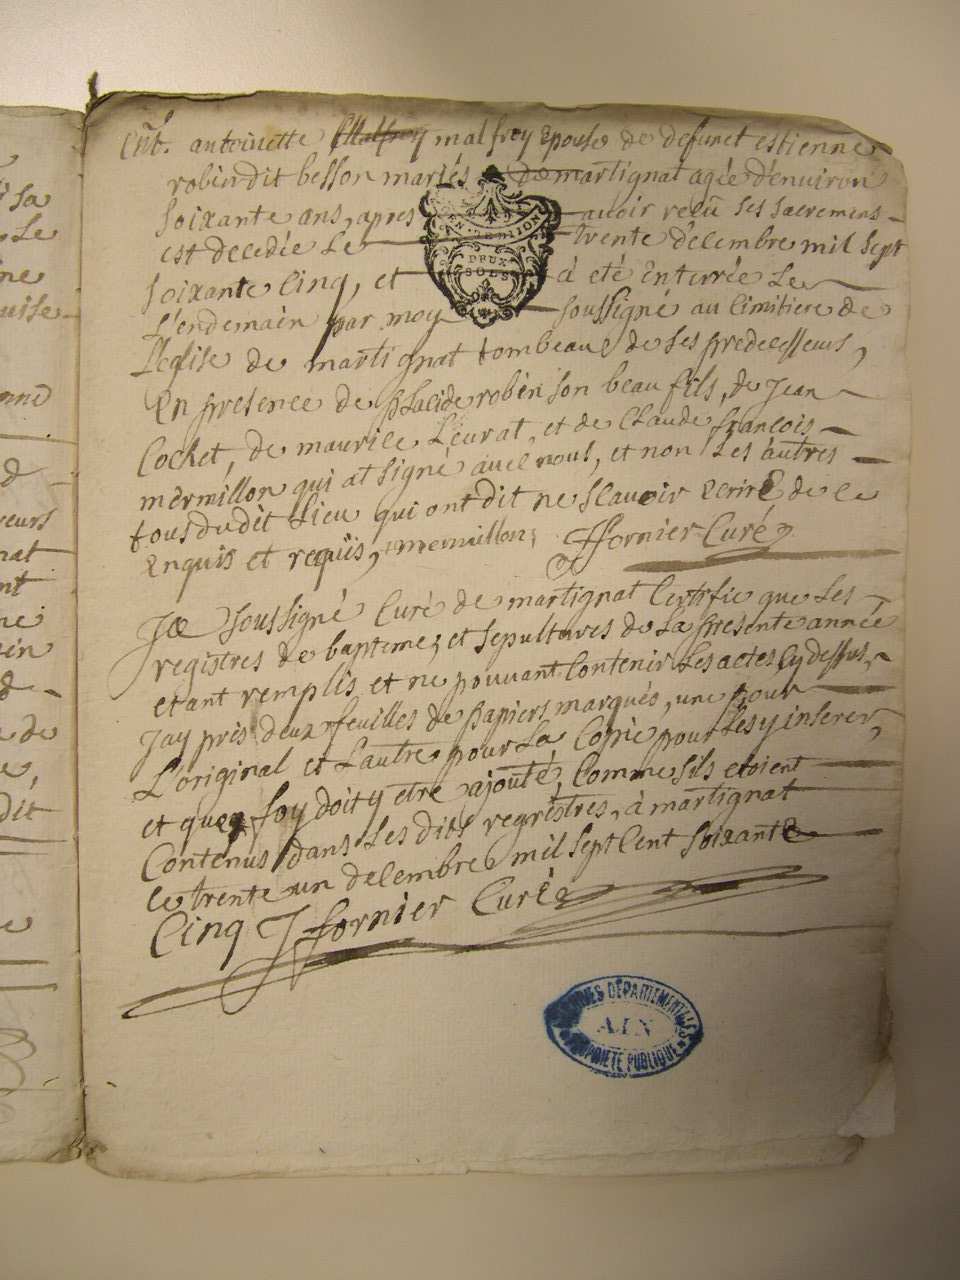 Ent. antoinette malfrey Epouse de defunct estienne
robin dit besson mariés de martignat agée d'environ
soixante ans, apres avoir reçû ses sacremens
est decedée le trente decembre mil sept
soixante cinq, et à eté Enterrée le
l'endemain par moy soussigné au cimitiere de
l'eglise de martignat tombeau de ses predecesseurs,
En presence de placide robin son beau fils, de jean
Cochet, de maurice Leurat, et de Claude françois
mermillon qui at signé avec nous, et non les autres
tous du dit lieu qui ont dit ne sçavoir ecrire de ce
Enquis et requis, mermillon, J fornier Curé
Je soussigné Curé de martignat Certifie que les
registres de bapteme, et sepultures de la presente année
etant remplis et ne pouvant Contenir les actes cy dessus,
jay pris deux feuilles de papiers marqués, une pour
L'original et Lautre pour La Copie pour les y inserer,
et que foy doit y etre ajouté, Comme sils etoient
Contenus dans les dits regristres, à martignat
ce trente un decembre mil sept Cent soixante
Cinq J fornier Curé
DEUX
SOLS
ARCHIVES DÉPARTEMENTALES
AIN
PROPRIÉTÉ PUBLIQUE